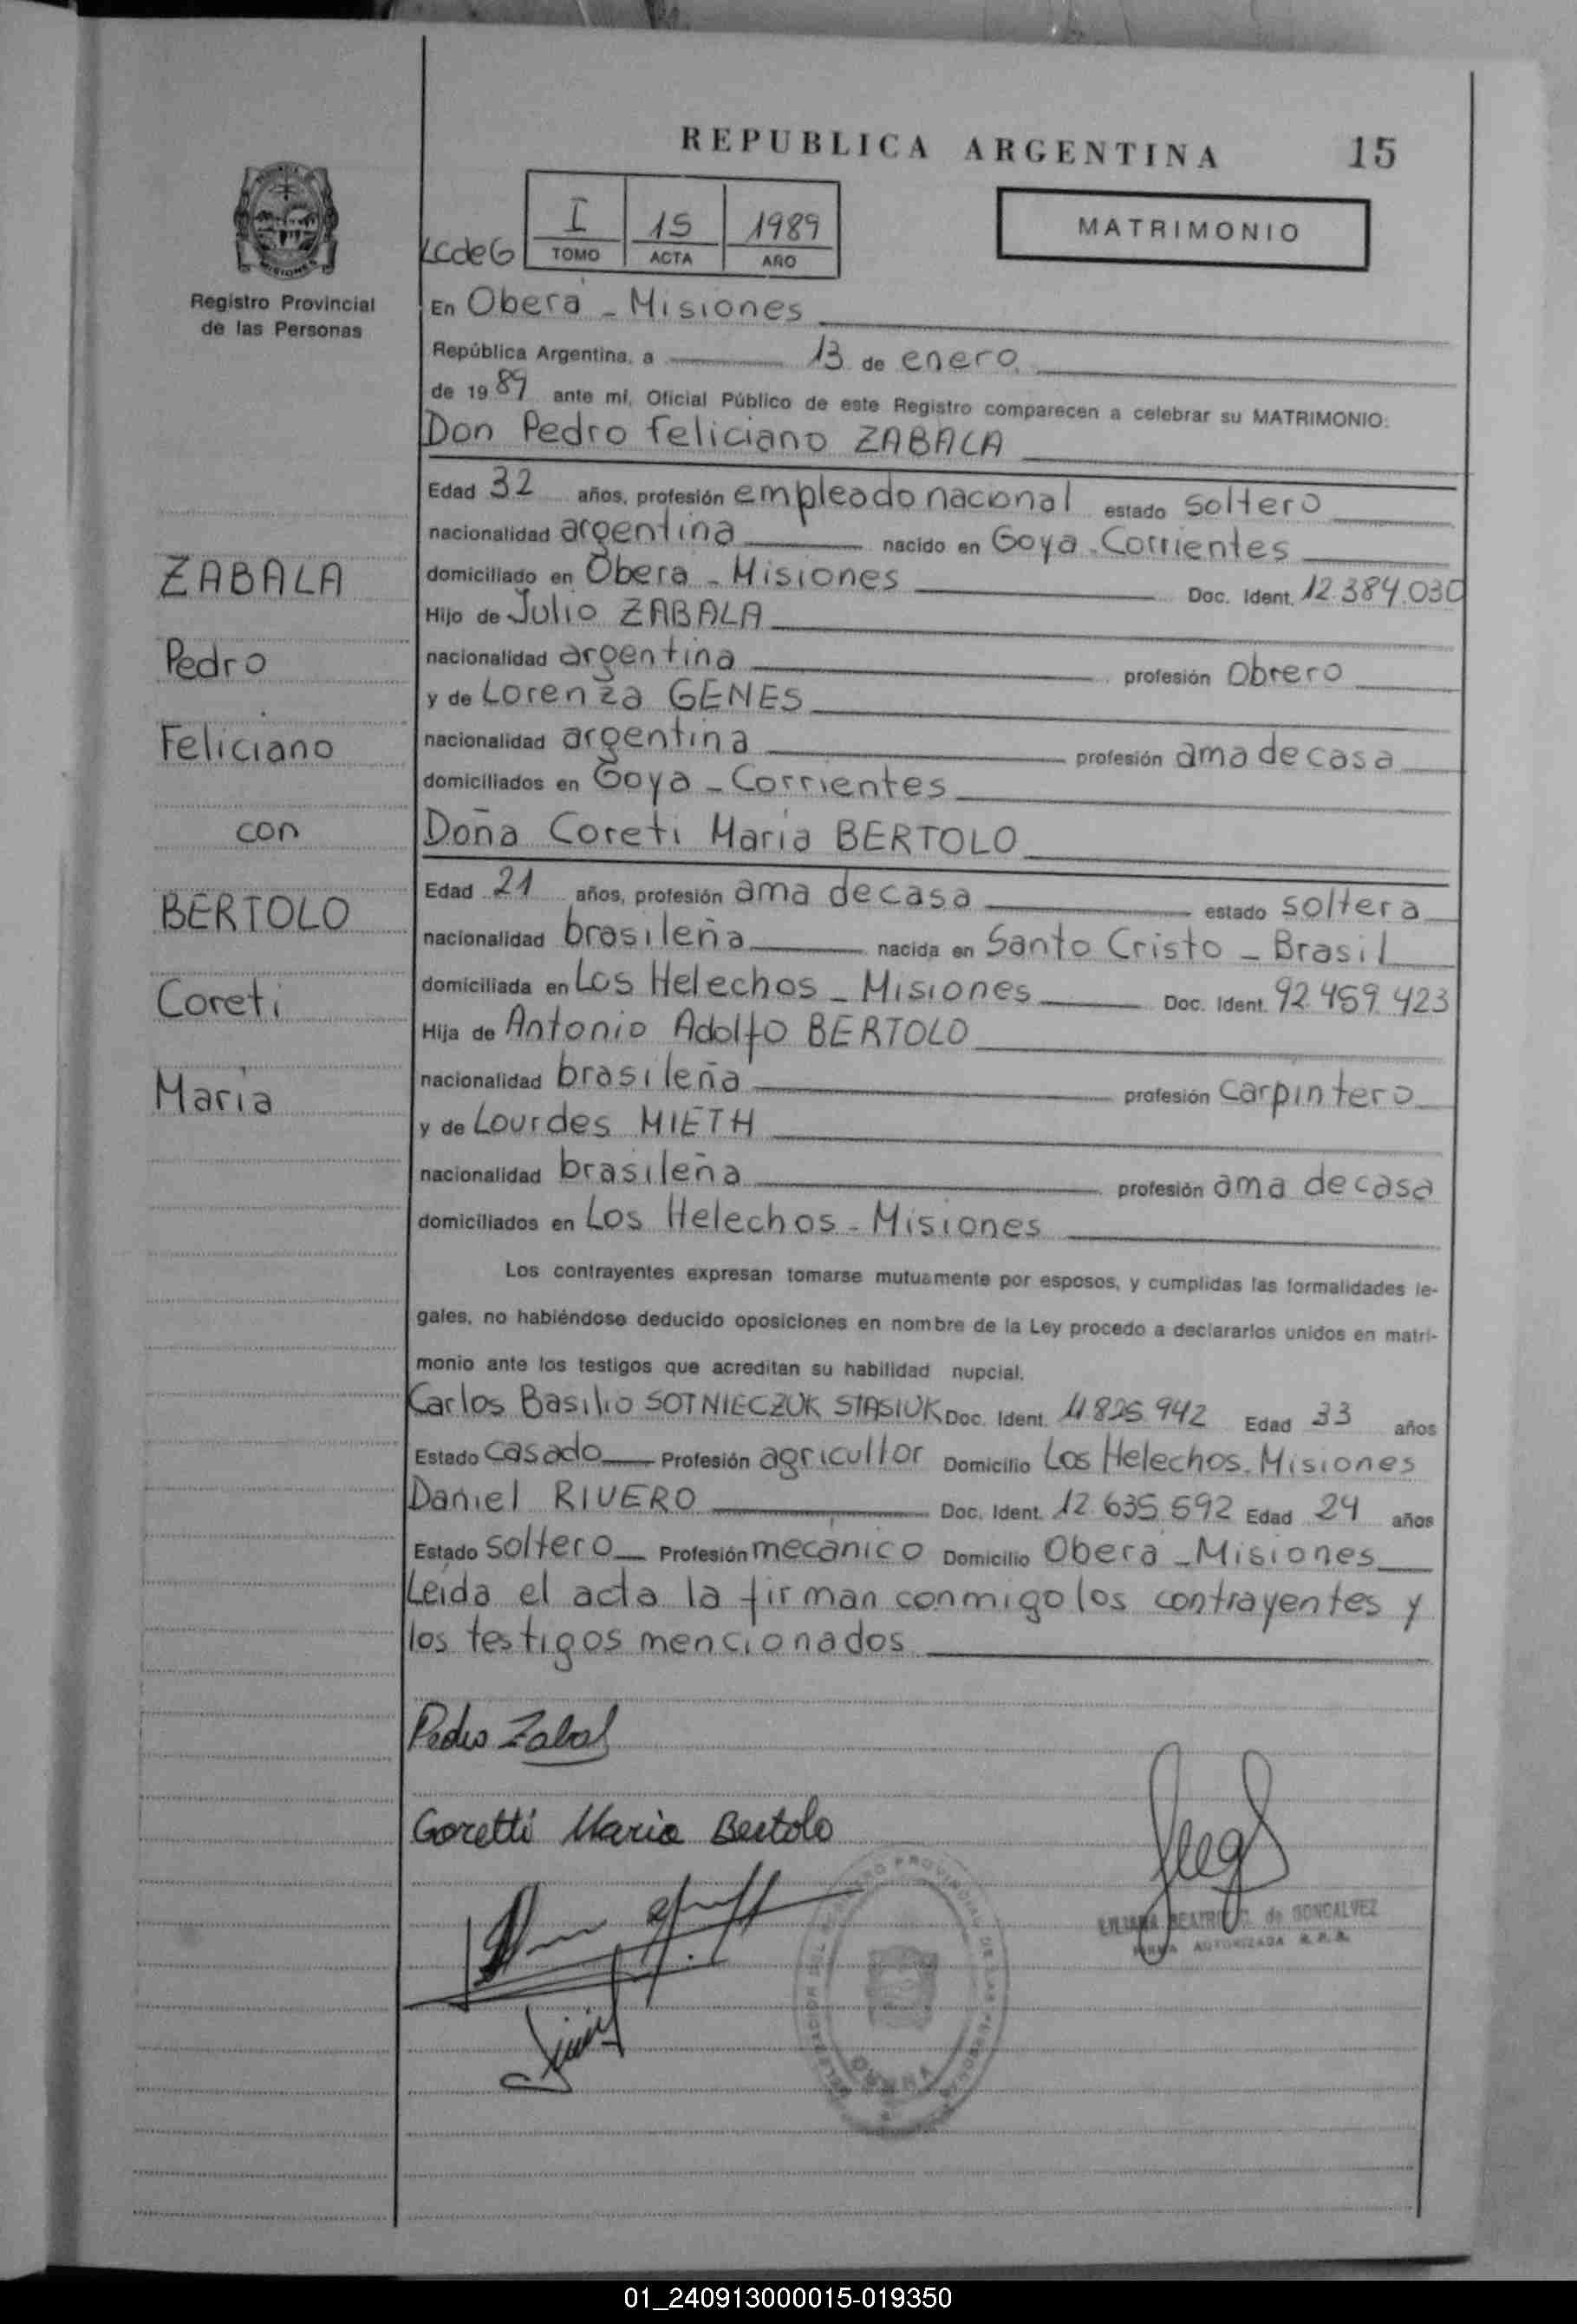 REPUBLICA ARGENTINA 15
MATRIMONIO
I 15 1989
TOMO ACTA AÑO
LCdeG
MISIONES
Registro Provincial
de las Personas
En Oberá - Misiones
República Argentina, a 13 de enero
de 1989 ante mí, Oficial Público de este Registro comparecen a celebrar su MATRIMONIO:
Don Pedro Feliciano ZABALA
Edad 32 años, profesión empleado nacional estado soltero
nacionalidad argentina nacido en Goya - Corrientes
domiciliado en Oberá - Misiones Doc. Ident. 12.384.030
Hijo de Julio ZABALA
nacionalidad argentina profesión obrero
y de Lorenza GENES
nacionalidad argentina profesión ama de casa
domiciliados en Goya - Corrientes
Doña Coreti Maria BERTOLO
Edad 21 años, profesión ama de casa estado soltera
nacionalidad brasileña nacida en Santo Cristo - Brasil
domiciliada en Los Helechos - Misiones Doc. Ident. 92.459.423
Hija de Antonio Adolfo BERTOLO
nacionalidad brasileña profesión carpintero
y de Lourdes MIETH
nacionalidad brasileña profesión ama de casa
domiciliados en Los Helechos - Misiones
ZABALA
Pedro
Feliciano
con
BERTOLO
Coreti
Maria
Los contrayentes expresan tomarse mutuamente por esposos, y cumplidas las formalidades le-
gales, no habiéndose deducido oposiciones en nombre de la Ley procedo a declararlos unidos en matri-
monio ante los testigos que acreditan su habilidad nupcial.
Carlos Basilio SOTNIECZUK STASIUK Doc. Ident. 11.825.942 Edad 33 años
Estado casado Profesión agricultor Domicilio Los Helechos - Misiones
Daniel RIVERO Doc. Ident. 12.635.592 Edad 24 años
Estado soltero Profesión mecánico Domicilio Oberá - Misiones
Leída el acta la firman conmigo los contrayentes y
los testigos mencionados
Pedro Zabal
Goretti Maria Bertolo
LILIANA BEATRIZ C. de GONCALVEZ
FIRMA AUTORIZADA
OBERA
01_240913000015-019350